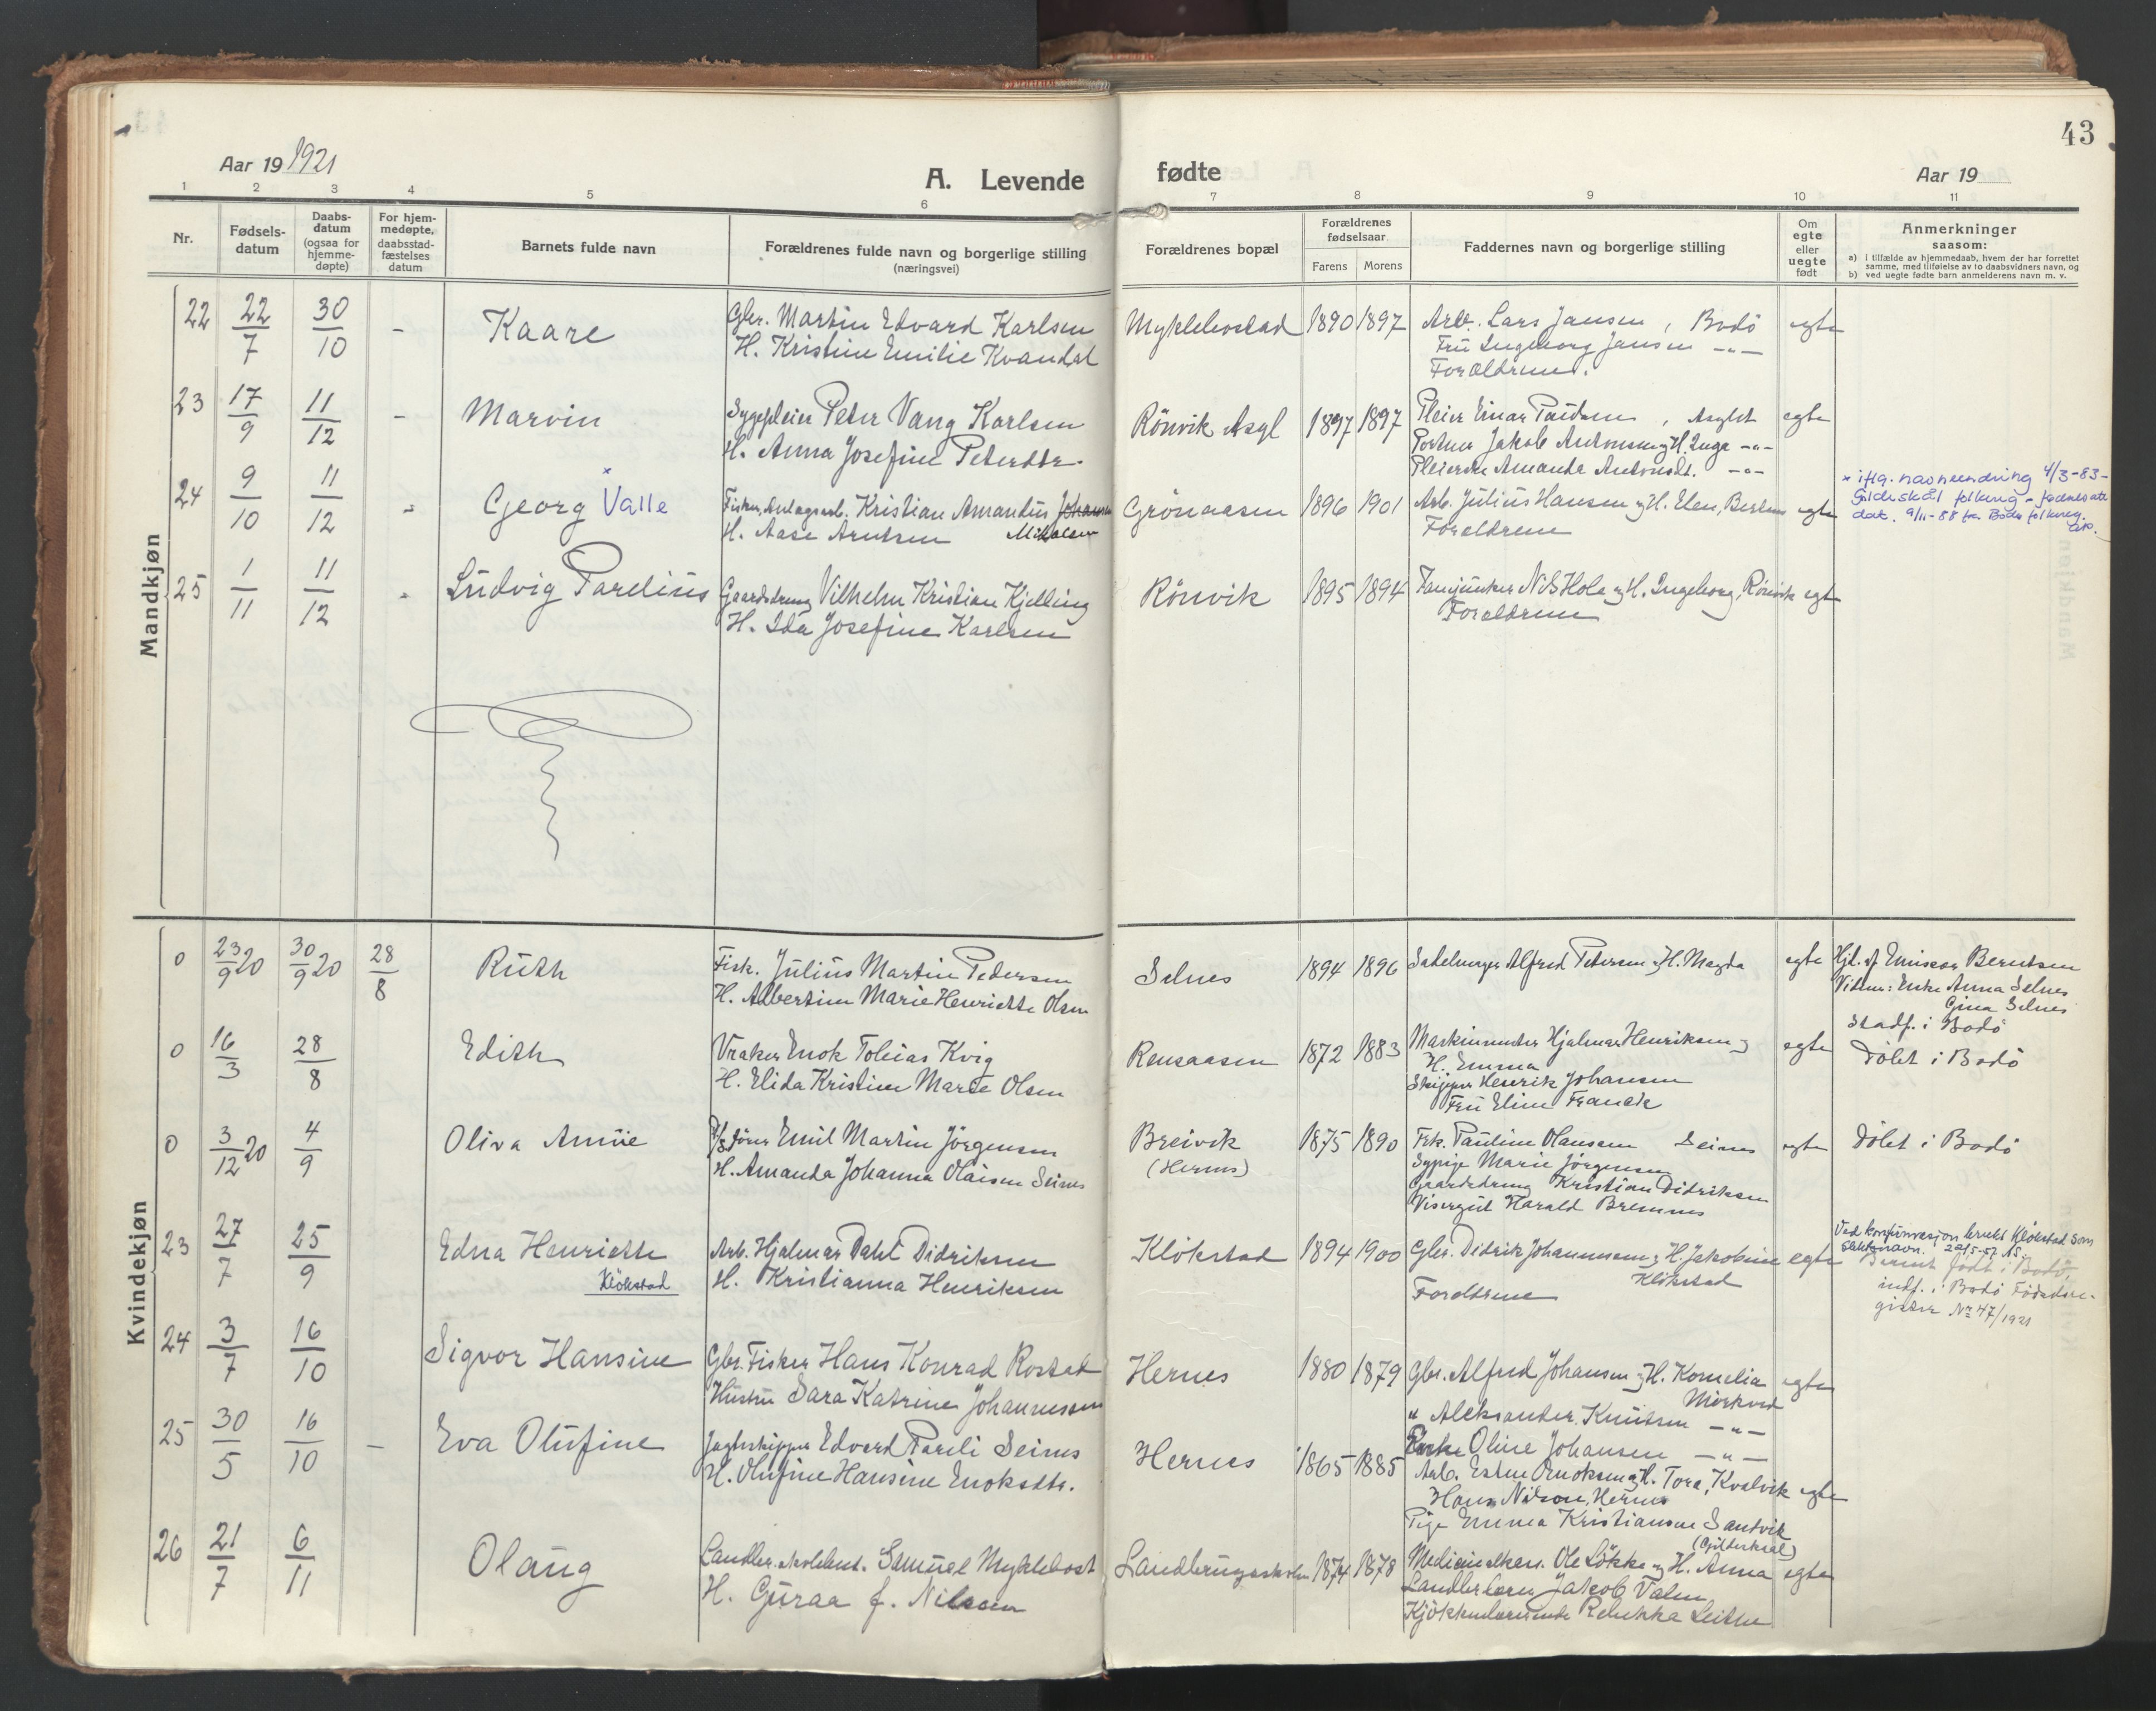 43
Aar 19 1921
A. Levende fødte
Aar 19
1 2 3 4 5 6 7 8 9 10 11
Nr.
Fødsels-
datum
Daabs-
datum
(ogsaa for
hjemme-
døpte)
For hjem-
medøpte,
daabsstad-
fæstelses
datum
Barnets fulde navn
Forældrenes fulde navn og borgerlige stilling
(næringsvei)
Forældrenes bopæl
Forældrenes
fødselsaar
Farens Morens
Faddernes navn og borgerlige stilling
Om
egte
eller
uegte
født
Anmerkninger
saasom:
a) i tilfælde av hjemmedaab, hvem der har forrettet
samme, med tilføielse av to daabsvidners navn, og
b) ved uegte fødte barn anmelderens navn m. v.
Mandkjøn
22 22/7 30/10 - Kaare
Gbr. Martin Edvard Karlsen
H. Kristine Emilie Kvandal
Myklebostad 1890 1897
Arb. Lars Jansen, Bodö egte
Fru Ingeborg Jansen -"-
Foreldrene.
23 17/9 11/12 - Marvin
Sygepleier Peter Vang Karlsen
H. Anna Josefine Petersdtr.
Rönvik Asyl 1897 1897
Pleier Einar Paulsen, Asylet egte
Portner Jakob Antonsen og H. Inga -"-
Pleierske Amanda Antonsdt. -"-
24 9/10 11/12 - Georg Valle
x
Fisker, Anlægsarb. Kristian Amandus Johansen
H. Aase Arntsen Mikalsen
Grönaasen 1896 1901
Arb. Julius Hansen og H. Elen, egte
Foreldrene
x iflg. navneendring 4/3-83-
Gildeskål folkereg - fødselsatt
dat. 9/11-88 fra Bodø folkereg.
25 1/11 11/12 - Ludvig Parelius
Gaardsdreng Vilhelm Kristian Kjelling
H. Ida Josefine Karlsen
Rönvik 1895 1894
Fanejunker Nils Hole og H. Ingeborg, Rönvik egte
Foreldrene
Kvindekjøn
0 23/9 20 30/9 20 28/8 Ruth
Fisk. Julius Martin Pedersen
H. Albertine Marie Henriette Olsen
Selnes 1894 1896
Sadelmager Alfred Petersen og H. Magda egte
Hjd. af Emissær Berntsen
Vidner: Enke Anna Selnes
Gina Selnes
Stadf. i Bodö
0 16/3 28/8 Edith
Vraker Enok Tobias Kvig
H. Elida Kristine Marie Olsen
Rensaasen 1872 1883
Maskinmester Hjalmar Henriksen og egte
H. Emma
Skipper Henrik Johansen
Fru Eline Franck
Döbt i Bodö
0 3/12 20 4/9 Oliva Amïe
Emil Martin Jörgensen
H. Amanda Johanna Olaisen Seines
Breivik
(Hernes)
1875 1890
Frk. Pauline Olaussen Seines egte
Sypige Marie Jörgensen
Gaardsdreng Kristian Didriksen
Visergut Harald Bremnes
Döbt i Bodö
23 27/7 25/9 Edna Henriette
Klökstad
Arb. Hjalmar Dahl Didriksen
H. Kristianna Henriksen
Klökstad 1894 1900
Gbr. Didrik Johannessen og H. Jakobine egte
Klökstad
Foreldrene
Ved konfirmasjon brukt Klökstad som
slektsnavn. 22/5-57 NS.
Barnet født i Bodö,
indf. i Bodö Fødselsre-
gister Nr 47/1921
24 3/7 16/10 Sigvor Hansine
Gbr. Fisker Hans Konrad Rostad
Hustru Sara Katrine Johannessen
Hernes 1880 1879
Gbr. Alfred Johansen og H. Kornelia egte
Mörkved
" Aleksander Knutsen -"-
Enke Oline Johansen -"-
25 30/5 16/10 - Eva Olufine
Jagteskipper Edvard Pareli Seines
H. Olufine Hansine Enoksdtr.
Hernes 1865 1885
Arb. Edvin Enoksen og H. Tora, Kvalvik egte
Hans Nilson, Hernes
Pige Emma Kristiansen Sandvik
(Gildeskaal)
26 21/7 6/11 Olaug
Landbr.skolebest. Samuel Myklebost
H. Guraa f. Nilssen
Landbrugsskolen 1874 1878
Medicinalkan. Ole Lökke og H. Anna egte
Landbr.lærer Jakob Valen
Kjökkenlærerinde Rebekka Leitne